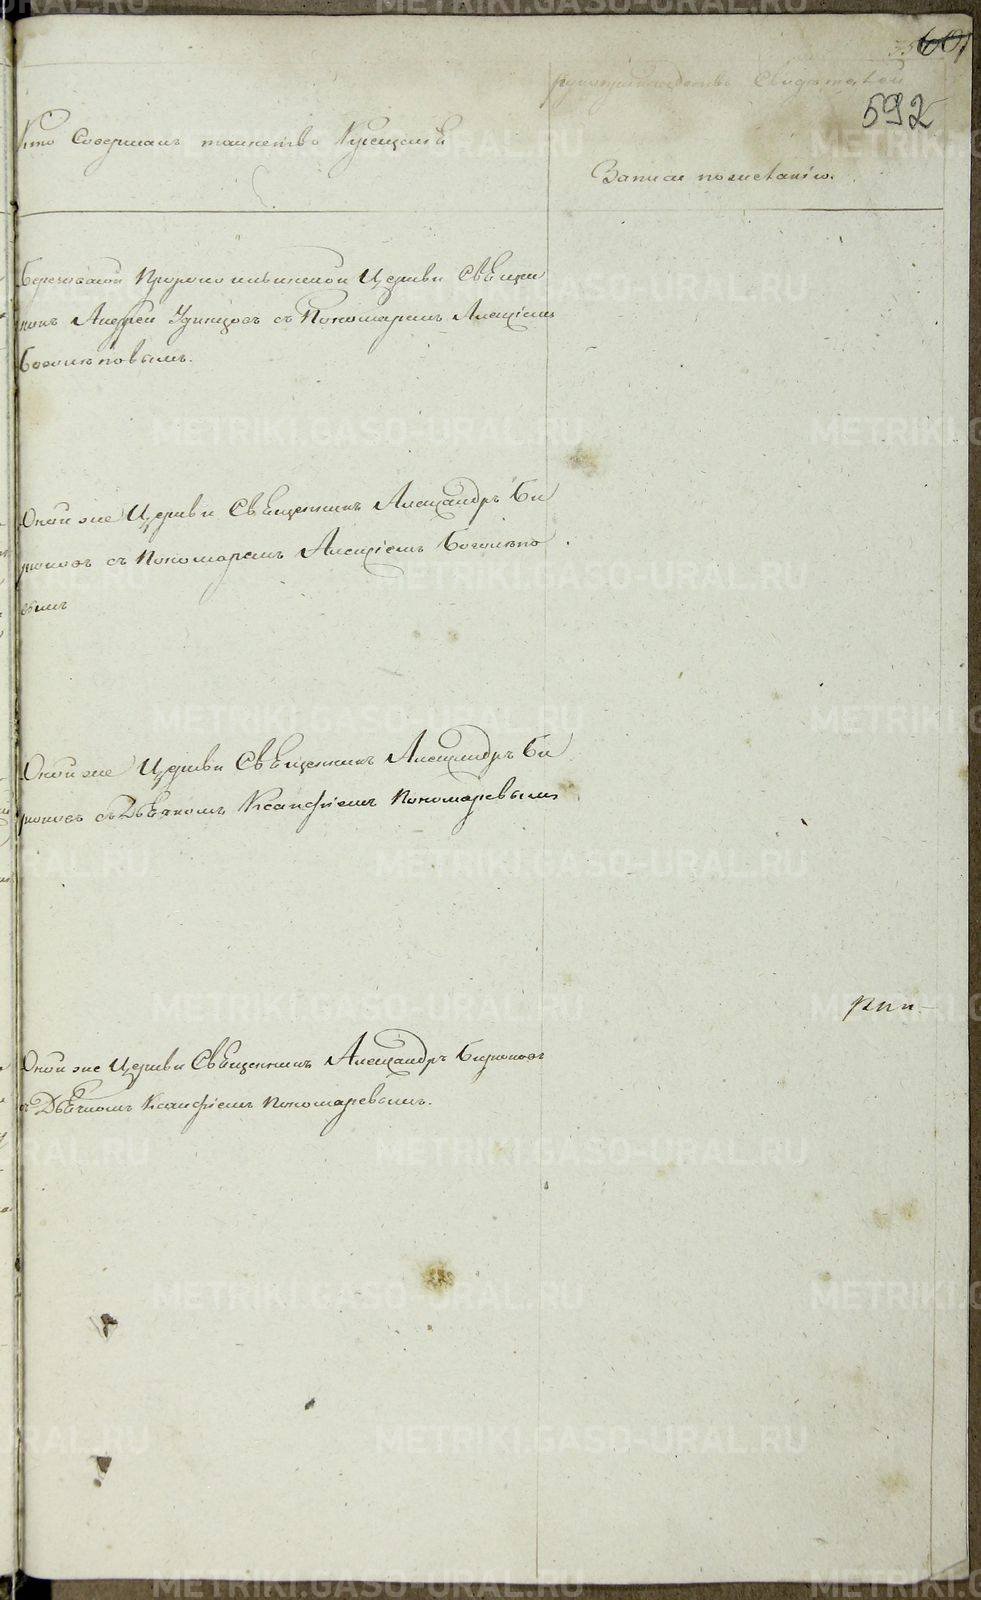 601
592
рукоприкладство Свидетелей
Кто Совершалъ таинство Крещенiя
Записи по желанiю.
Березовской Пророко ильинской Церкви Свѣщен
никъ Андрей Удинцовъ съ Пономаремъ Алексiемъ
Боголѣповымъ.
Оной же Церкви Свѣщенникъ Александръ Би
рюковъ съ Пономаремъ Алексiемъ Боголѣпо
вымъ
Оной же Церкви Свѣщенникъ Александръ Би
рюковъ съ Дьячкомъ Ксанфiемъ Пономаревымъ
Оной же Церкви Свѣщенникъ Александръ Бирюковъ
съ Дьячкомъ Ксанфiемъ Пономаревымъ.
METRIKI.GASO-URAL.RU